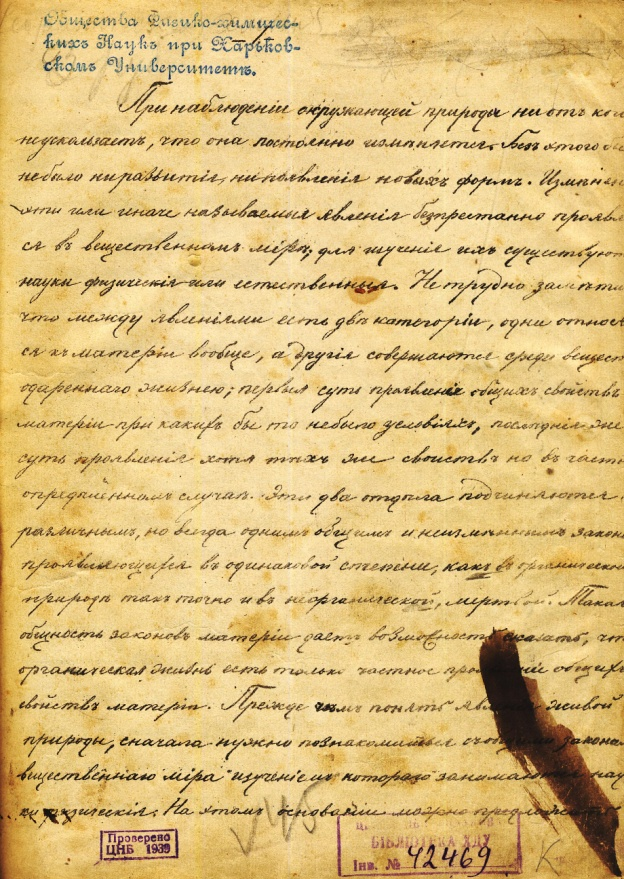 Общества Физико-химичес-
кихъ Наукъ при Харьков-
скомъ Университетѣ.
При наблюденіи окружающей природы ни отъ ко
неускользаетъ, что она постоянно измѣняется. Безъ этого
небыло ни развитія, ни появленія новыхъ формъ. Измѣнен
эти или иначе называемыя явленія безпрестанно прояв
ся въ вещественномъ мірѣ; для изученія ихъ существуют
науки физическія или естественныя. Не трудно замѣти
что между явленіями есть двѣ категоріи, одни относя
ся къ матеріи вообще, а другія совершаются среди вещест
одареннаго жизнею; первыя суть проявленія общихъ свойствъ
матеріи при какихъ бы то небыло условіяхъ, послѣднія же
суть проявленія хотя тѣхъ же свойствъ но въ частн
опредѣленномъ случаѣ. Эти два отдѣла подчиняются
различнымъ, но всегда однимъ общимъ и неизмѣннымъ закона
проявляющимся въ одинаковой степени, какъ въ органическо
природѣ такъ точно и въ неорганической, мертвой. Такая
общность законовъ матеріи даетъ возможность сказать, чт
органическая жизнь есть только частное проявленіе общихъ
свойствъ матеріи. Прежде чѣмъ понять явленія живой
природы, сначала нужно познакомиться съ общими закона
вещественнаго міра изученіемъ котораго занимаются нау
ки физическія. На этомъ основаніи можно предложить
Проверено
ЦНБ 1939
√45
БІБЛІОТЕКА ХДУ
Інв. № 42469
К